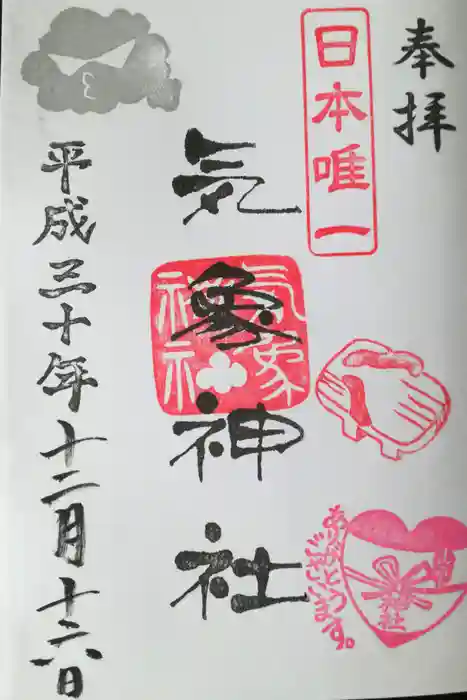 奉拝
日本唯一
気象神社
気象神社
ありがとう
ございます。
平成三十年十二月十六日